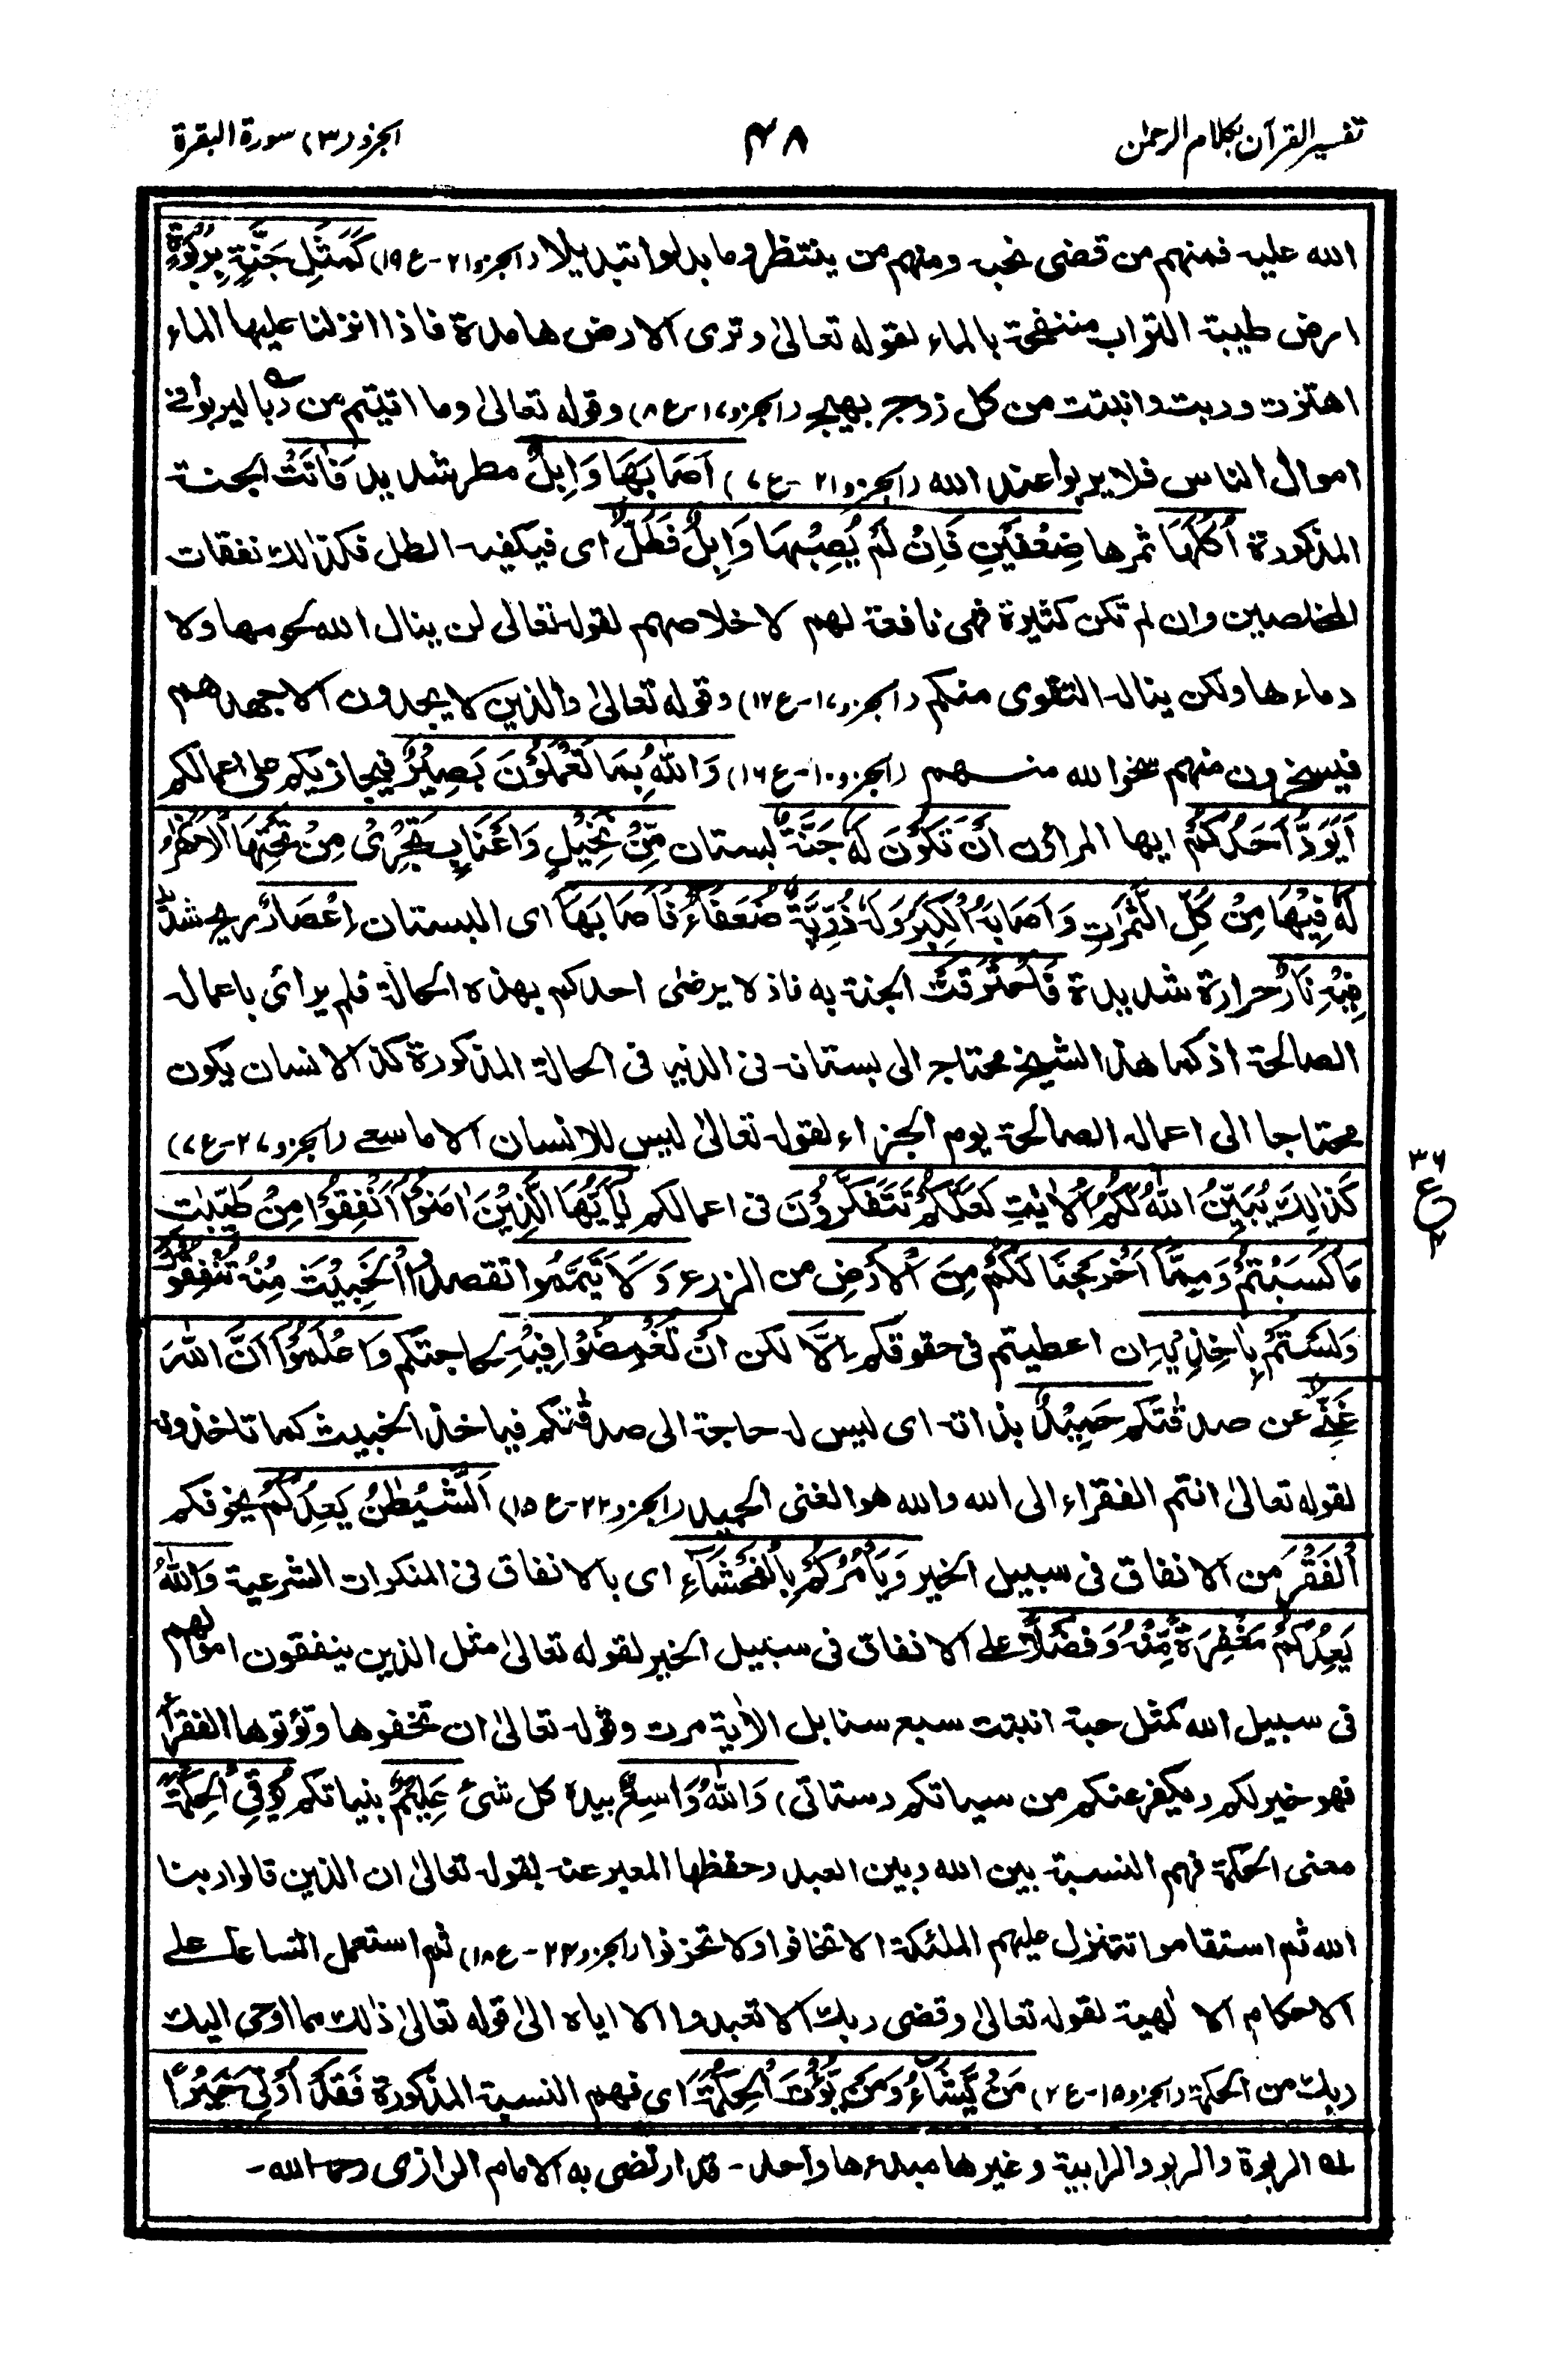 تفسير القرآن بكلام الرحمٰن
٤٨
الجزو(٣) سورة البقرة
الله عليه فمنهم من قضى نحبه ومنهم من ينتظر وما بدلوا تبديلا (الجزو٢١-ع١٩) كَمَثَلِ جَنَّةٍ بِرَبْوَةٍ
ارض طيبة التراب منتفخة بالماء لقوله تعالىٰ وترى الارض هامدة فاذا انزلنا عليها الماء
اهتزت وربت وانبتت من كل زوج بهيج (الجزو١٧-ع٨) وقوله تعالىٰ وما اتيتم من ربا ليربوا فے
اموال الناس فلا يربوا عند الله (الجزو٢١-ع٧) اَصَابَهَا وَابِلٌ مطر شديد فَاٰتَتْ الجنة
المذكورة اُكُلَهَا ثمرها ضِعْفَيْنِ فَاِنْ لَّمْ يُصِبْهَا وَابِلٌ فَطَلٌّ اى فيكفيه الطل فكذالك نفقات
المخلصين وان لم تكن كثيرة فهى نافعة لهم لاخلاصهم لقوله تعالى لن ينال الله لحومها ولا
دماءها ولكن يناله التقوى منكم (الجزو١٧-ع١٢) وقوله تعالىٰ والذين لا يجدون الا جهدهم
فيسخرون منهم سخر الله منهم (الجزو١٠-ع١٦) وَاللهُ بِمَا تَعْمَلُوْنَ بَصِيْرٌ فيجازيكم على اعمالكم
اَيَوَدُّ اَحَدُكُمْ ايها المراؤن اَنْ تَكُوْنَ لَهٗ جَنَّةٌ بستان مِّنْ نَّخِيْلٍ وَّاَعْنَابٍ تَجْرِىْ مِنْ تَحْتِهَا الْاَنْهٰرُ
لَهٗ فِيْهَا مِنْ كُلِّ الثَّمَرٰتِ وَاَصَابَهُ الْكِبَرُ وَلَهٗ ذُرِّيَّةٌ ضُعَفَآءُ فَاَصَابَهَا اى البستان اِعْصَارٌ ريح شديد
فِيْهِ نَارٌ حرارة شديدة فَاحْتَرَقَتْ الجنة به فاذ لا يرضى احدكم بهذه الحالة فلم يرائى باعماله
الصالحة اذ كما هذا الشيخ محتاج الى بستانه فى الدنيا فى الحالة المذكورة كذا الانسان يكون
محتاجا الى اعماله الصالحة يوم الجزاء لقوله تعالىٰ ليس للانسان الا ما سعے (الجزو٢٧-ع٧)
كَذٰلِكَ يُبَيِّنُ اللهُ لَكُمُ الْاٰيٰتِ لَعَلَّكُمْ تَتَفَكَّرُوْنَ فى اعمالكم يٰٓاَيُّهَا الَّذِيْنَ اٰمَنُوْٓا اَنْفِقُوْا مِنْ طَيِّبٰتِ
٣٦
ع
٤
مَا كَسَبْتُمْ وَمِمَّآ اَخْرَجْنَا لَكُمْ مِّنَ الْاَرْضِ من الزرع وَلَا تَيَمَّمُوا تقصدوا الْخَبِيْثَ مِنْهُ تُنْفِقُوْنَ
وَلَسْتُمْ بِاٰخِذِيْهِ ان اعطيتم فى حقوقكم اِلَّآ لكن اَنْ تُغْمِضُوْا فِيْهِ لحاجتكم وَاعْلَمُوْٓا اَنَّ اللهَ
غَنِيٌّ عن صدقٰتكم حَمِيْدٌ بذاته اى ليس له حاجة الى صدقٰتكم فياخذ الخبيث كما تاخذونه
لقوله تعالىٰ انتم الفقراء الى الله والله هو الغنى الحميد (الجزو٢٢-ع١٥) اَلشَّيْطٰنُ يَعِدُكُمُ يخوفكم
الْفَقْرَ من الانفاق فى سبيل الخير وَيَاْمُرُكُمْ بِالْفَحْشَآءِ اى بالانفاق فى المنكرات الشرعية وَاللهُ
يَعِدُكُمْ مَّغْفِرَةً مِّنْهُ وَفَضْلًا على الانفاق فى سبيل الخير لقوله تعالىٰ مثل الذين ينفقون اموالهم
فى سبيل الله كمثل حبة انبتت سبع سنابل الاٰية مرت وقوله تعالىٰ ان تخفوها وتؤتوها الفقراء
فهو خير لكم ويكفر عنكم من سياتكم (ستاتى) وَاللهُ وَاسِعٌ بيده كل شئ عَلِيْمٌ بنياتكم يُّؤْتِى الْحِكْمَةَ
معنى الحكمة فهم النسبة بين الله وبين العبد وحفظها المعبر عنه بقوله تعالىٰ ان الذين قالوا ربنا
الله ثم استقاموا تتنزل عليهم الملئكة الا تخافوا ولا تحزنوا (الجزو٢٤-ع١٨) ثم استعمل اتساعا على
الاحكام الالٰهية لقوله تعالىٰ وقضى ربك الا تعبدوا الا اياه الىٰ قوله تعالىٰ ذٰلك مما اوحى اليك
ربك من الحكمة (الجزو١٥-ع٢) مَنْ يَّشَآءُ وَمَنْ يُّؤْتَ الْحِكْمَةَ اى فهم النسبة المذكورة فَقَدْ اُوْتِىَ خَيْرًا
لـه الربوة والربو والرابية وغيرها مبدءها واحد - قد ارتضى به الامام الرازى رحمه الله -